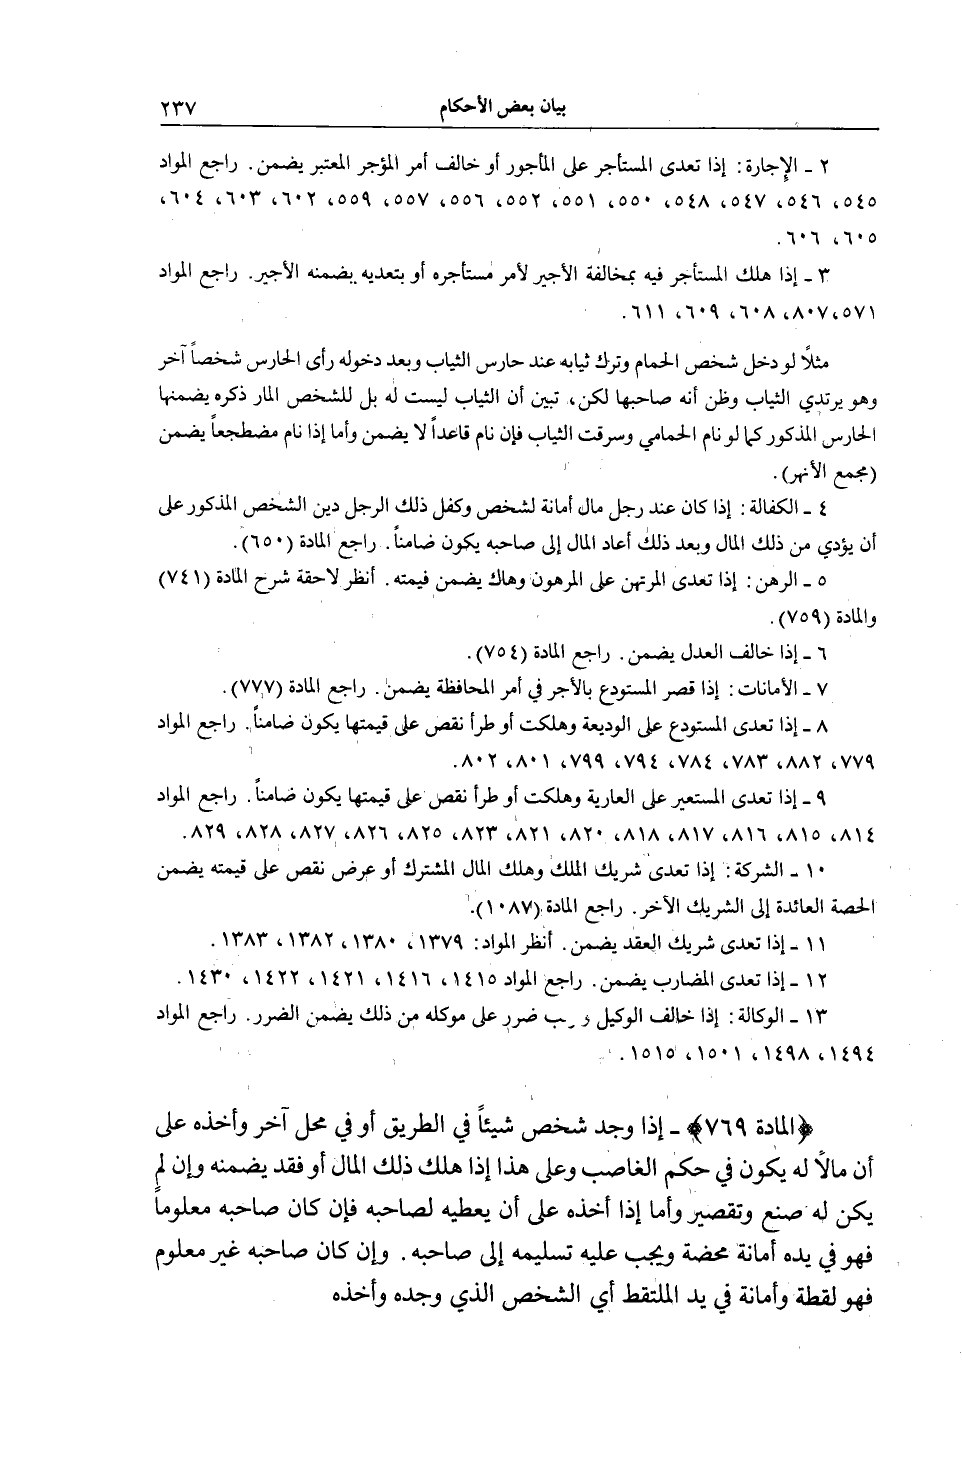 بيان بعض الأحكام ٢٣٧
٢ ـ الإجارة: إذا تعدى المستأجر على المأجور أو خالف أمر المؤجر المعتبر يضمن. راجع المواد
٥٤٥، ٥٤٦، ٥٤٧، ٥٤٨، ٥٥٠، ٥٥١، ٥٥٢، ٥٥٦، ٥٥٧، ٥٥٩، ٦٠٢، ٦٠٣، ٦٠٤،
٦٠٥، ٦٠٦.
٣ ـ إذا هلك المستأجر فيه بمخالفة الأجير لأمر مستأجره أو بتعديه يضمنه الأجير. راجع المواد
٥٧١،٨٠٧، ٦٠٨، ٦٠٩، ٦١١.
مثلًا لو دخل شخص الحمام وترك ثيابه عند حارس الثياب وبعد دخوله رأى الحارس شخصاً آخر
وهو يرتدي الثياب وظن أنه صاحبها لكن، تبين أن الثياب ليست له بل للشخص المار ذكره يضمنها
الحارس المذكور كما لو نام الحمامي وسرقت الثياب فإن نام قاعداً لا يضمن وأما إذا نام مضطجعاً يضمن
(مجمع الأنهر).
٤ ـ الكفالة: إذا كان عند رجل مال أمانة لشخص وكفل ذلك الرجل دين الشخص المذكور على
أن يؤدي من ذلك المال وبعد ذلك أعاد المال إلى صاحبه يكون ضامناً. راجع المادة (٦٥٠).
٥ ـ الرهن: إذا تعدى المرتهن على المرهون وهاك يضمن قيمته. أنظر لاحقة شرح المادة (٧٤١)
والمادة (٧٥٩).
٦ ـ إذا خالف العدل يضمن. راجع المادة (٧٥٤).
٧ ـ الأمانات: إذا قصر المستودع بالأجر في أمر المحافظة يضمن. راجع المادة (٧٧٧).
٨ ـ إذا تعدى المستودع على الوديعة وهلكت أو طرأ نقص على قيمتها يكون ضامناً. راجع المواد
٧٧٩، ٨٨٢، ٧٨٣، ٧٨٤، ٧٩٤، ٧٩٩، ٨٠١، ٨٠٢.
٩ ـ إذا تعدى المستعير على العارية وهلكت أو طرأ نقص على قيمتها يكون ضامناً. راجع المواد
٨١٤، ٨١٥، ٨١٦، ٨١٧، ٨١٨، ٨٢٠، ٨٢١، ٨٢٣، ٨٢٥، ٨٢٦، ٨٢٧، ٨٢٨، ٨٢٩.
١٠ ـ الشركة: إذا تعدى شريك الملك وهلك المال المشترك أو عرض نقص على قيمته يضمن
الحصة العائدة إلى الشريك الآخر. راجع المادة (١٠٨٧).
١١ ـ إذا تعدى شريك العقد يضمن. أنظر المواد: ١٣٧٩، ١٣٨٠، ١٣٨٢، ١٣٨٣.
١٢ ـ إذا تعدى المضارب يضمن. راجع المواد ١٤١٥، ١٤١٦، ١٤٢١، ١٤٢٢، ١٤٣٠.
١٣ ـ الوكالة: إذا خالف الوكيل ضرر على موكله من ذلك يضمن الضرر. راجع المواد
١٤٩٤، ١٤٩٨، ١٥٠١، ١٥١٥.
﴿المادة ٧٦٩﴾ ـ إذا وجد شخص شيئاً في الطريق أو في محل آخر وأخذه على
أن مالًا له يكون في حكم الغاصب وعلى هذا إذا هلك ذلك المال أو فقد يضمنه وإن لم
يكن له صنع وتقصير وأما إذا أخذه على أن يعطيه لصاحبه فإن كان صاحبه معلوماً
فهو في يده أمانة محضة ويجب عليه تسليمه إلى صاحبه. وإن كان صاحبه غير معلوم
فهو لقطة وأمانة في يد الملتقط أي الشخص الذي وجده وأخذه